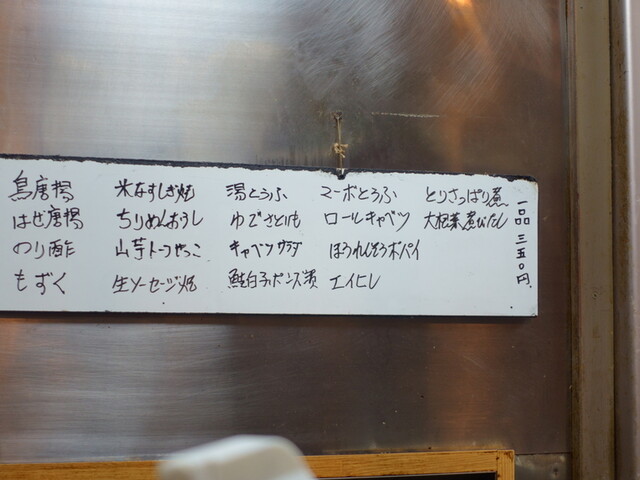 鳥唐揚 米なすしぎ焼 湯とうふ マーボとうふ とりさっぱり煮
はぜ唐揚 ちりめんおろし ゆでさといも ロールキャベツ 大根葉煮びたし
のり酢 山芋トーフやっこ キャベツサラダ ほうれんそうポパイ
もずく 生ソーセージ焼 鮭白子ポンズ漬 エイヒレ
一品 三五〇円